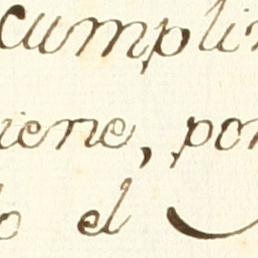 cumpli
iene, por
o el